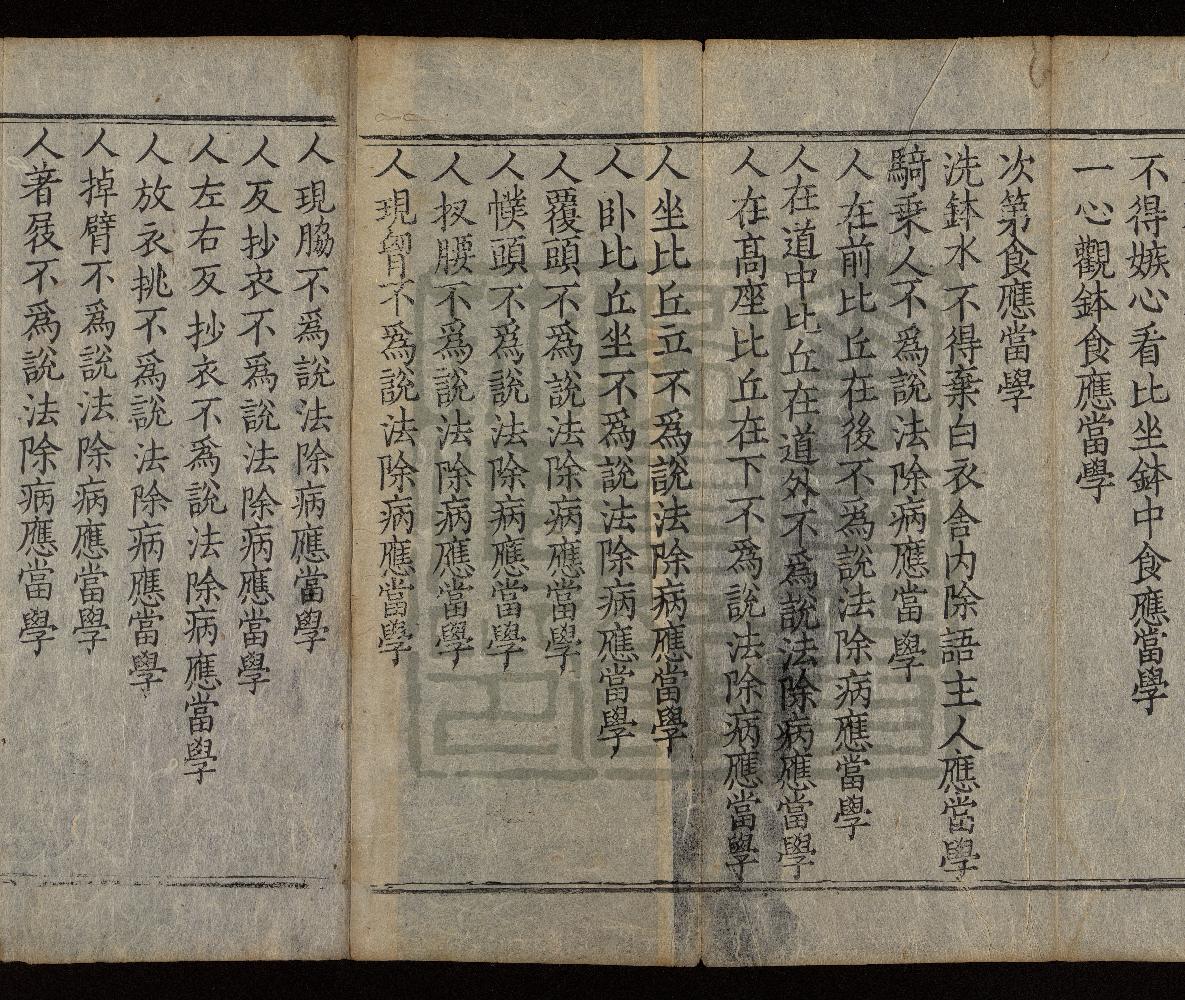 不得嫉心看比坐鉢中食應當學
一心觀鉢食應當學
次第食應當學
洗鉢水不得棄白衣舍內除語主人應當學
騎乗人不為說法除病應當學
人在前比丘在後不為說法除病應當學
人在道中比丘在道外不為說法除病應當學
人在髙座比丘在下不為說法除病應當學
人坐比丘立不為說法除病應當學
人卧比丘坐不為說法除病應當學
人覆頭不為說法除病應當學
人幞頭不為說法除病應當學
人扠腰不為說法除病應當學
人現胷不為說法除病應當學
人現脇不為說法除病應當學
人反抄衣不為說法除病應當學
人左右反抄衣不為說法除病應當學
人放衣挑不為說法除病應當學
人掉臂不為說法除病應當學
人著屐不為說法除病應當學